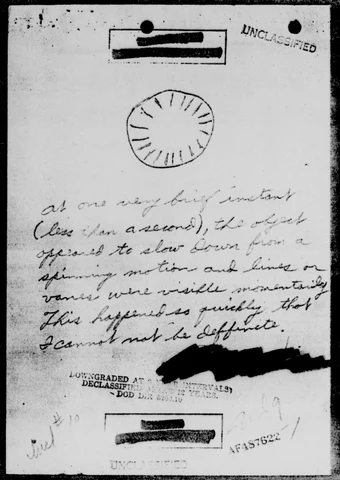 UNCLASSIFIED
at one very brief instant
(less than a second), the object
appeared to slow down from a
spinning motion and lines or
vanes were visible momentarily
This happened so quickly that
I cannot not be deffinite.
DOWNGRADED AT INTERVALS)
DECLASSIFIED YEARS.
DOD DIR
AFAS7622
UNCLASSIFIED